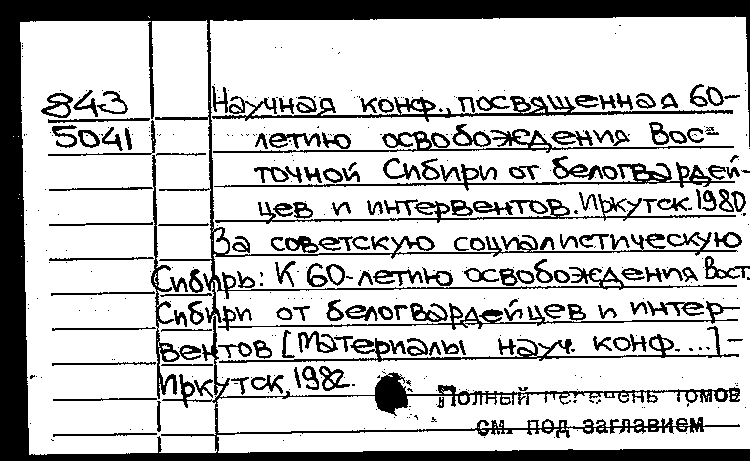 843 Научная конф., посвященная 60-
5041 летию освобождения Вос-
точной Сибири от белогвардей-
цев и интервентов. Иркутск. 1980.
За советскую социалистическую
Сибирь: К 60-летию освобождения Вост.
Сибири от белогвардейцев и интер-
вентов [Материалы науч. конф....] -
Иркутск, 1982.
Полный перечень томов
см. под заглавием